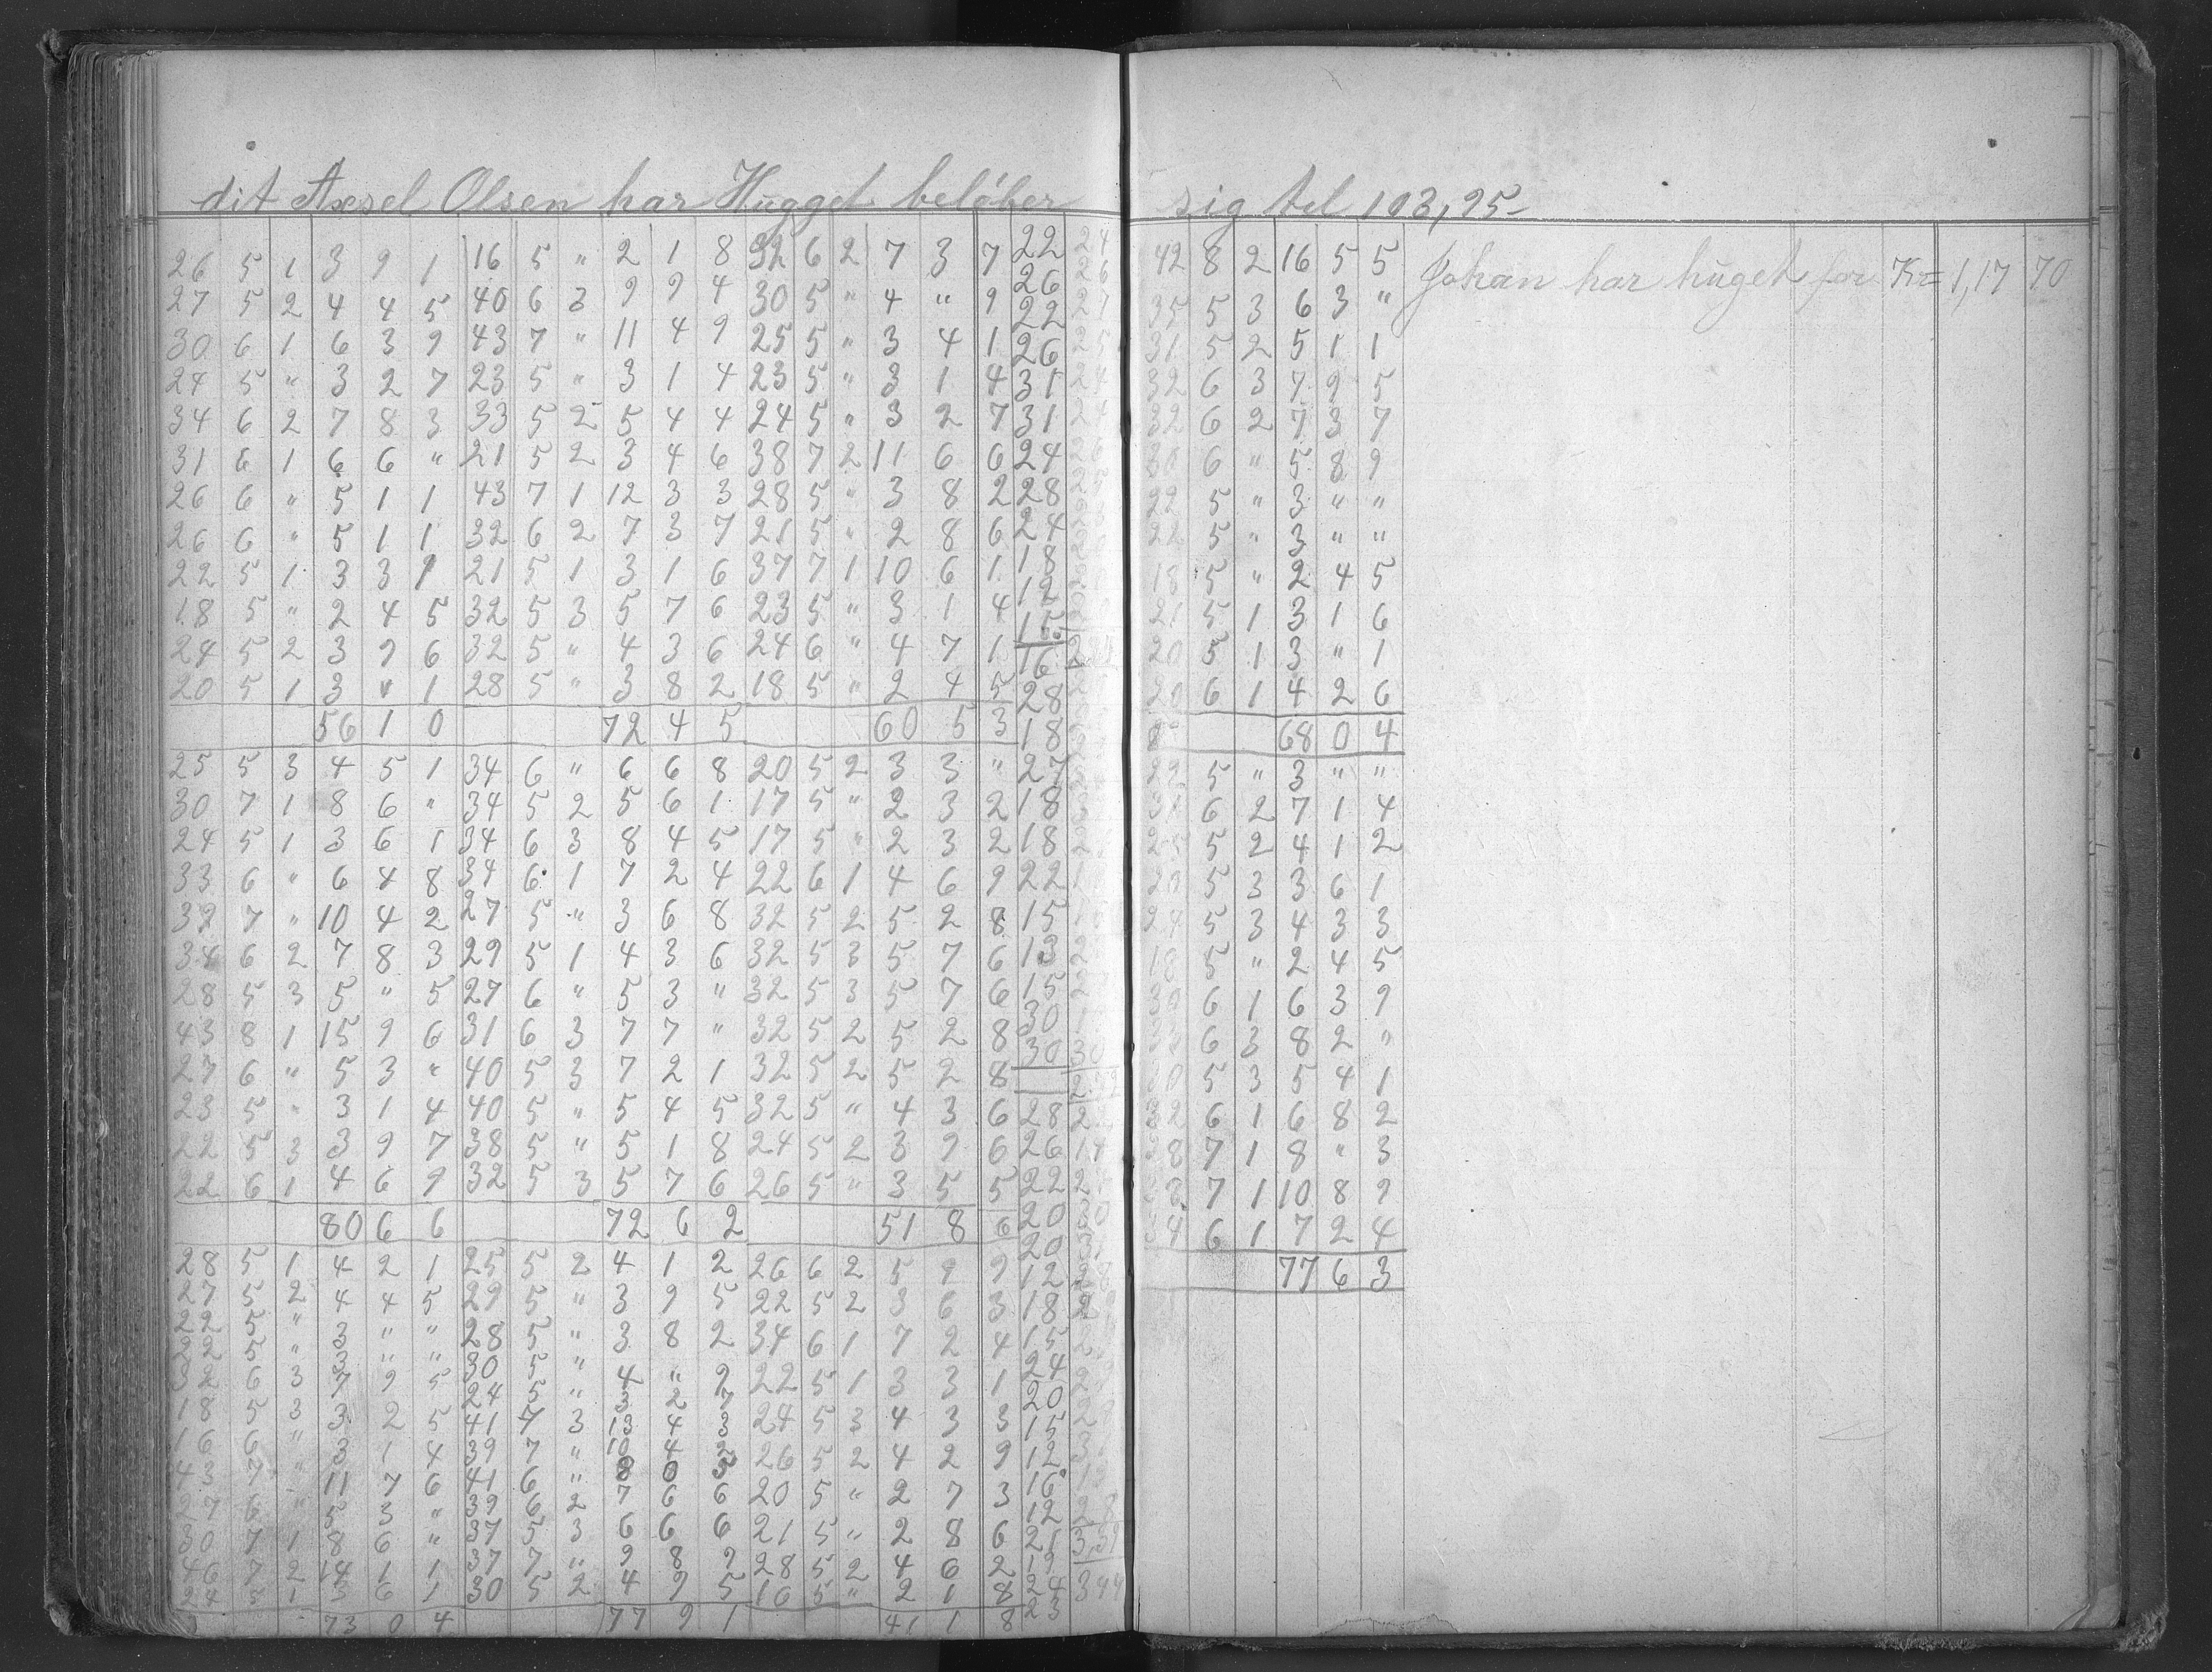 dit Axsel Olsen har Hugget beløber sig tel 103,95-
26 5 1 3 9 1 16 5 " 2 1 8 32 6 2 7 3 7 22 24
27 5 2 4 4 5 40 6 3 9 9 4 30 5 " 4 " 9 26 26
30 6 1 6 3 9 43 7 " 11 4 9 25 5 " 3 4 1 22 27
24 5 " 3 2 7 23 5 " 3 1 4 23 5 " 3 1 4 26 25
34 6 2 7 8 3 33 5 2 5 4 4 24 5 " 3 2 7 31 24
31 6 1 6 6 " 21 5 2 3 4 6 38 7 2 11 6 6 31 24
26 6 " 5 1 1 43 7 1 12 3 3 28 5 " 3 8 2 24
26 6 " 5 1 1 32 6 2 7 3 7 21 5 " 2 8 6 28
22 5 1 3 3 1 21 5 1 3 1 6 37 7 1 10 6 1 24
18 5 " 2 4 5 32 5 3 5 7 6 23 5 " 3 1 4 18
24 5 2 3 9 6 32 5 " 4 3 6 24 6 " 4 7 1 12
20 5 1 3 " 1 28 5 " 3 8 2 18 5 " 2 4 5 15
56 1 0 72 4 5 60 5 3 16
28
18
25 5 3 4 5 1 34 6 " 6 6 8 20 5 2 3 3 " 27
30 7 1 8 6 " 34 5 2 5 6 1 17 5 " 2 3 2 18
24 5 1 3 6 1 34 6 3 8 4 5 17 5 " 2 3 2 18
33 6 " 6 4 8 34 6 1 7 2 4 22 6 1 4 6 9 22
32 7 " 10 4 2 27 5 " 3 6 8 32 5 2 5 2 8 15
34 6 2 7 8 3 29 5 1 4 3 6 32 5 3 5 7 6 13
28 5 3 5 " 5 27 6 " 5 3 " 32 5 3 5 7 6 15
43 8 1 15 9 6 31 6 3 7 7 " 32 5 2 5 2 8 30
27 6 " 5 3 " 40 5 3 7 2 1 32 5 2 5 2 8 30 30
23 5 " 3 1 4 40 5 " 5 4 5 32 5 " 4 3 6 28
22 5 3 3 9 7 38 5 " 5 1 8 24 5 2 3 9 6 26 14
22 6 1 4 6 9 32 5 3 5 7 6 26 5 " 3 5 5 22
80 6 6 72 6 2 51 8 6 20
28 5 1 4 2 1 25 5 2 4 1 2 26 6 2 5 9 9 20
27 5 2 4 4 5 29 5 " 3 9 5 22 5 2 3 6 3 12
22 5 " 3 " " 28 5 " 3 8 2 34 6 1 7 2 4 18
22 5 " 3 " " 30 5 " 4 " 9 22 5 1 3 3 1 15
32 6 3 7 9 5 24 5 " 3 2 7 24 5 3 4 3 3 24
18 5 3 3 2 5 41 7 3 13 4 3 26 5 2 4 2 9 20
16 6 " 3 1 4 39 7 " 10 4 2 20 5 " 2 7 3 15
43 7 " 11 7 6 41 6 " 8 0 5 21 5 " 2 8 6 12
27 6 " 5 3 " 39 6 2 7 6 6 28 5 2 4 6 2 16
30 7 1 8 6 " 37 5 3 6 6 6 16 5 " 2 1 8 12
46 7 2 14 1 1 37 7 " 9 8 9 21 3,31
24 5 1 3 6 1 30 5 2 4 9 5 19 344
24
73 0 4 77 9 1 41 1 8 23
42 8 2 16 5 5 Johan har huget for Kr= 1,17 70
35 5 3 6 3 "
31 5 2 5 1 1
32 6 3 7 9 5
32 6 2 7 3 7
30 6 " 5 8 9
22 5 " 3 " "
22 5 " 3 " "
18 5 " 2 4 5
21 5 1 3 1 6
20 5 1 3 " 1
20 6 1 4 2 6
68 0 4
22 5 " 3 " "
31 6 2 7 1 4
25 5 2 4 1 2
20 5 3 3 6 1
24 5 3 4 3 3
18 5 " 2 4 5
30 6 1 6 3 9
33 6 3 8 2 "
30 5 3 5 4 1
32 6 1 6 8 2
28 7 1 8 " 3
7 1 10 8 9
34 6 1 7 2 4
77 6 3